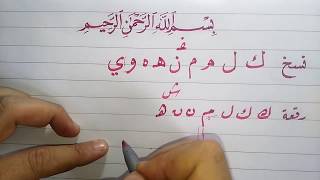 بِسْمِ اللهِ الرَّحْمٰنِ الرَّحِيْمِ
نسخ ك ل م م ن ه ه و ي
رقعة ك ك ل م ن ن ه